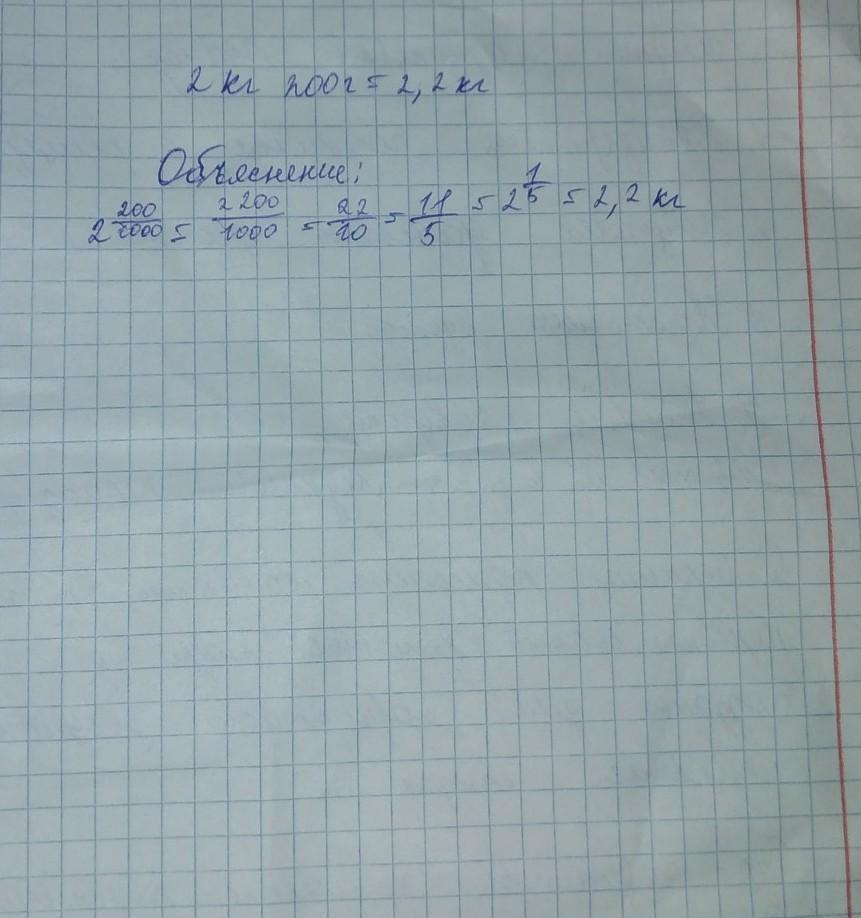 2 кг 200г = 2,2 кг
Объяснение:
2 200/1000 = 2 200/1000 = 22/10 = 11/5 = 2 1/5 = 2,2 кг